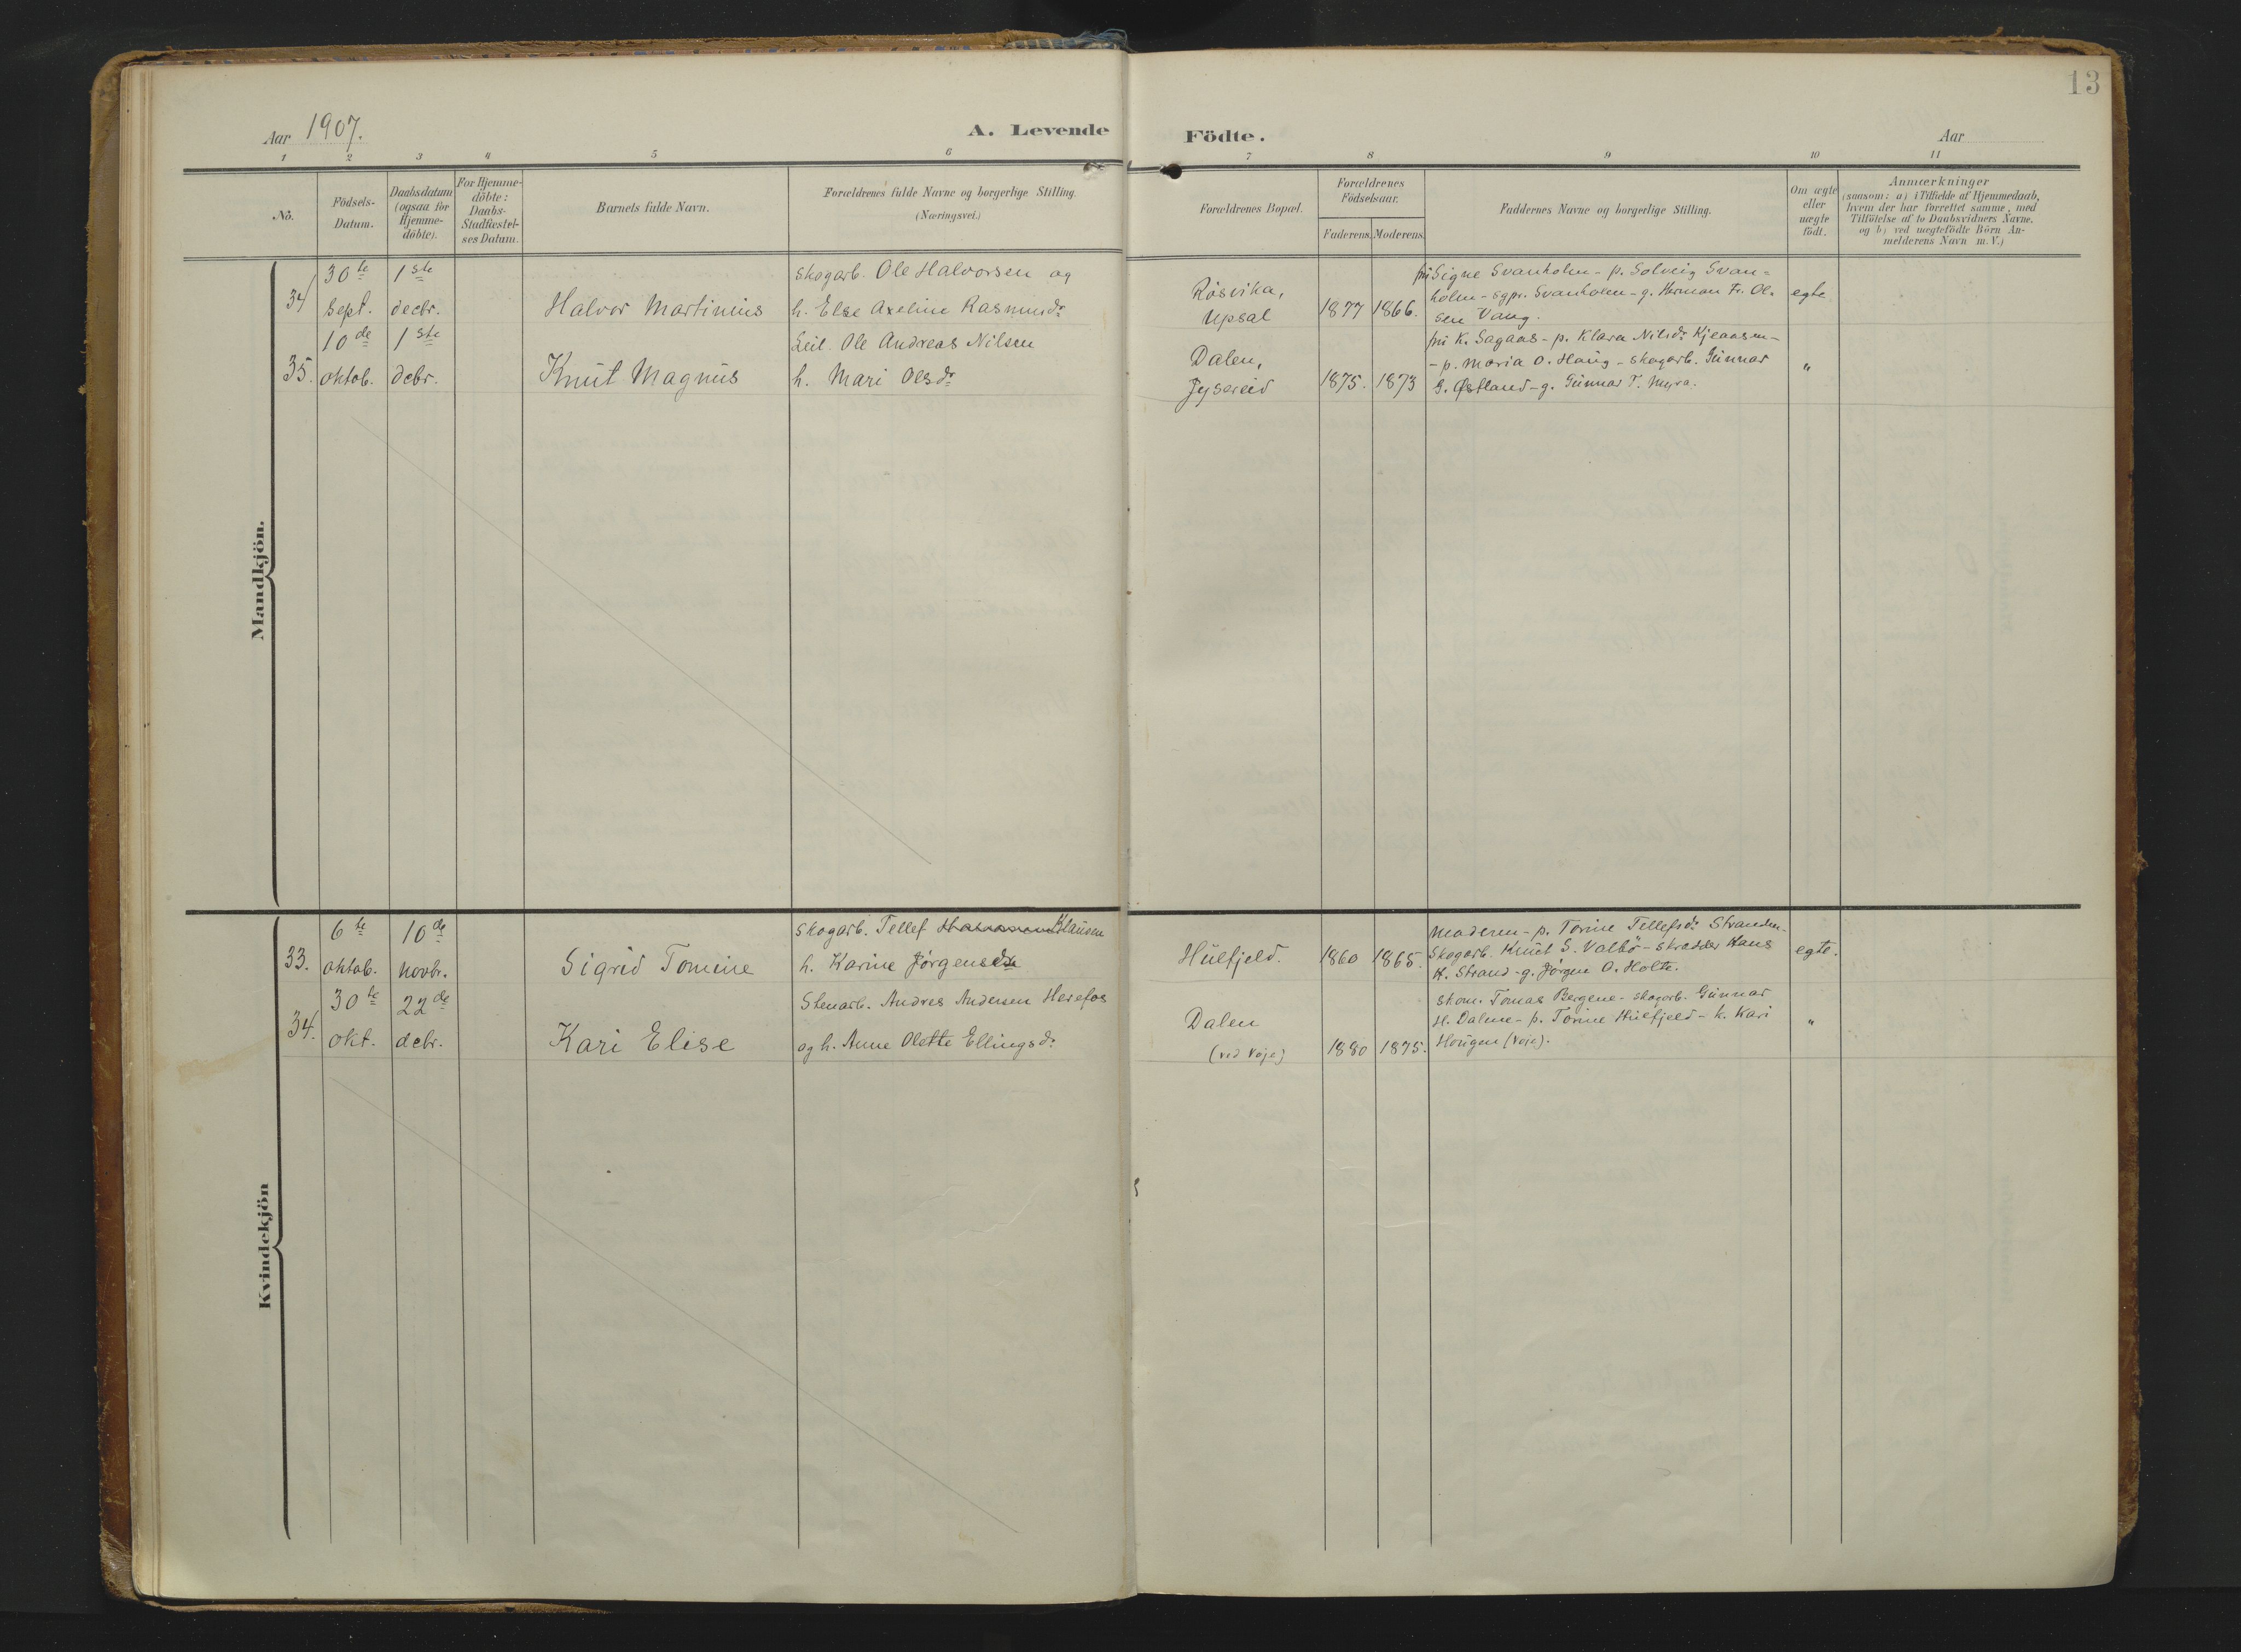 13
Aar 1907.
A. Levende Födte.
Aar
1 2 3 4 5 6 7 8 9 10 11
No.
Födsels-
Datum.
Daabsdatum
(ogsaa for
Hjemme-
döbte).
For Hjemme-
döbte:
Daabs-
Stadfæstel-
ses Datum.
Barnets fulde Navn.
Forældrenes fulde Navne og borgerlige Stilling.
(Næringsvei.)
Forældrenes Bopæl.
Forældrenes
Födselsaar.
Faderens. Moderens.
Faddernes Navne og borgerlige Stilling.
Om ægte
eller
uægte
födt.
Anmærkninger
(saasom: a) i Tilfælde af Hjemmedaab,
hvem der har forrettet samme, med
Tilföielse af to Daabsvidners Navne,
og b) ved uægtefödte Börn An-
melderens Navn m. V.)
Mandkjön.
34
30te
Sept.
1ste
decbr.
Halvor Martinius
Skogarb. Ole Halvorsen og
h. Else Axeline Rasmusdr
Røsvika,
Upsal
1877 1866.
fru Signe Svanholm - p. Solveig Svan=
holm - sgpr. Svanholm - g. Herman Fr. Ol-
sen Vang.
egte
35.
10de
oktob.
1ste
debr.
Knut Magnus
Leil. Ole Andreas Nilsen
h. Mari Olsdr
Dalen,
Jysereid
1875. 1873
fru K. Sagaas - p. Klara Nilsdr Kjeaasen-
- p. Maria O. Haug - skogarb. Gunnar
G. Østland - g. Gunnar T. Myra.
"
Kvindekjön
33.
6te
oktob.
10de
novbr.
Sigrid Tomine
Skogarb. Tellef Klausen
h. Karine Jørgensdr
Hulfjeld.
1860 1865.
Moderen - p. Torine Tellefsdr Stranden-
Skogarb. Knut S. Valbø - Hans
K. Strand - g. Jørgen O. Holte.
egte.
34.
30te
okt.
22de
debr.
Kari Elise
Stenarb. Andres Andersen Herefos
og h. Anne Olette Ellingsdr
Dalen
(ved Vøje)
1880 1875.
skom. Tomas Bergene - skogarb. Gunnar
H. Dalene - p. Torine Hulfjeld - k. Kari
Hougen (Vøje).
"